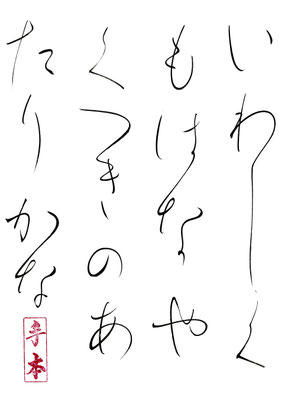 いわしく
もはなや
くつきのあ
たりかな
手本